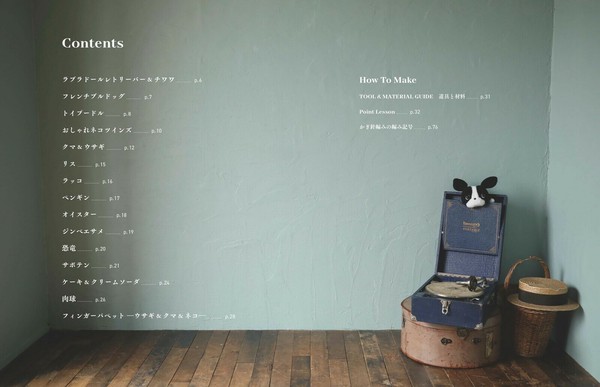 Contents
ラブラドールレトリーバー & チワワ ...... p.4
フレンチブルドッグ ...... p.7
トイプードル ...... p.8
おしゃれネコツインズ ...... p.10
クマ & ウサギ ...... p.12
リス ...... p.15
ラッコ ...... p.16
ペンギン ...... p.17
オイスター ...... p.18
ジンベエザメ ...... p.19
恐竜 ...... p.20
サボテン ...... p.21
ケーキ & クリームソーダ ...... p.24
肉球 ...... p.26
フィンガーパペット ―ウサギ & クマ & ネコ― ...... p.28
How To Make
TOOL & MATERIAL GUIDE 道具と材料 ...... p.31
Point Lesson ...... p.32
かぎ針編みの編み記号 ...... p.76